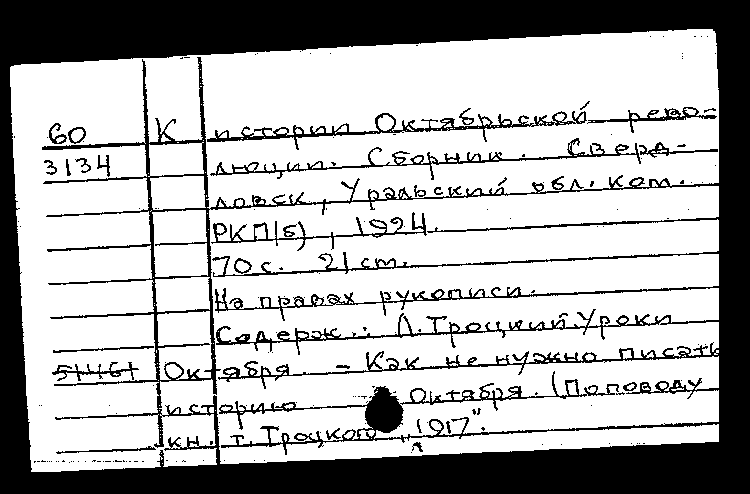 60 К истории Октябрьской рево-
3134 люции. Сборник. Сверд-
ловск, Уральский обл. ком.
РКП(б), 1924.
70с. 21 см.
На правах рукописи.
Содерж.: Л. Троцкий. Уроки
51461 Октября. - Как не нужно писать
историю Октября. (По поводу
кн. т. Троцкого „1917".